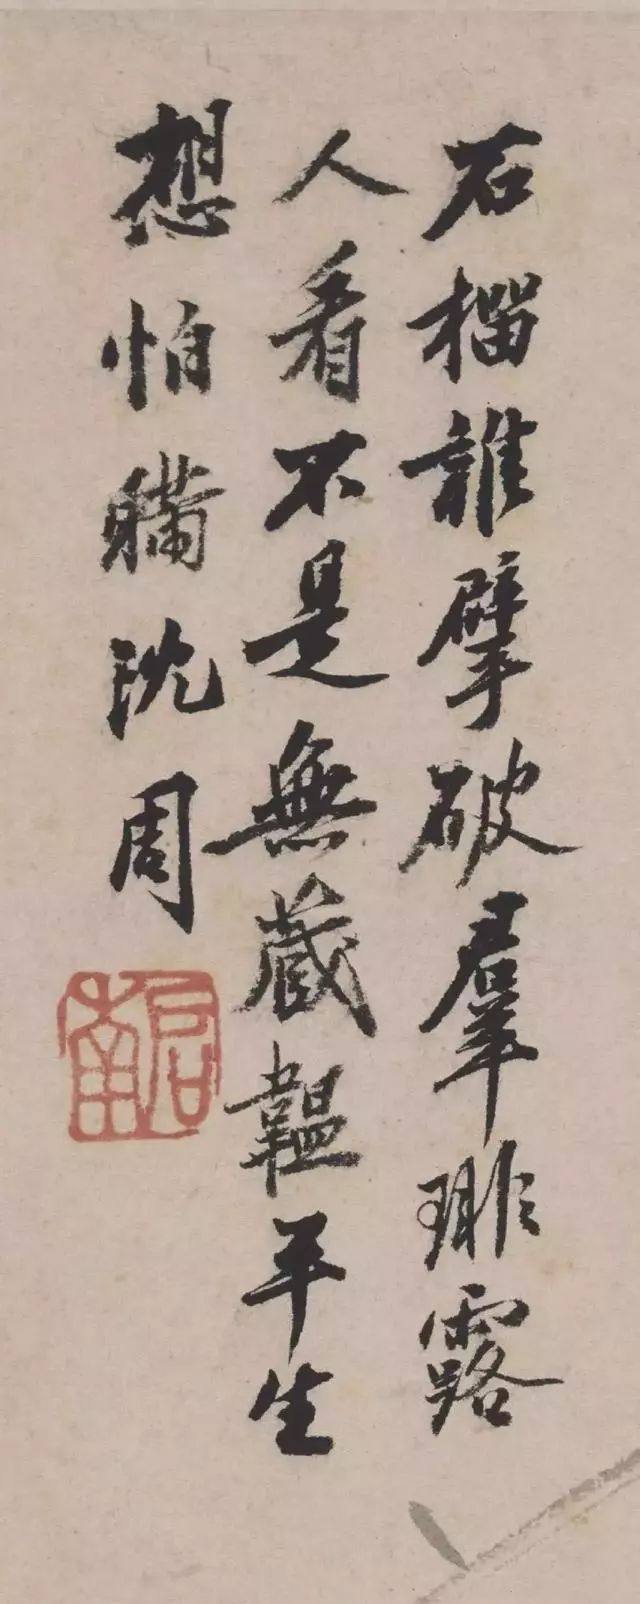 石榴誰擘破羣琲露
人看不是無藏韞平生
想怕瞞沈周
启南